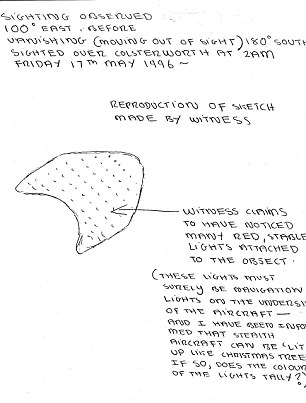 SIGHTING OBSERVED
100° EAST. BEFORE
VANISHING (MOVING OUT OF SIGHT) 180° SOUTH
SIGHTED OVER COLSTERWORTH AT 2AM
FRIDAY 17TH MAY 1996 ~
REPRODUCTION OF SKETCH
MADE BY WITNESS
WITNESS CLAIMS
TO HAVE NOTICED
MANY RED, STABLE
LIGHTS ATTACHED
TO THE OBJECT.
(THESE LIGHTS MUST
SURELY BE NAVIGATION
LIGHTS ON THE UNDERSI
OF THE AIRCRAFT —
AND I HAVE BEEN INFOR
MED THAT STEALTH
AIRCRAFT CAN BE 'LIT
UP LIKE CHRISTMAS TREE
IF SO, DOES THE COLOUR
OF THE LIGHTS TALLY?